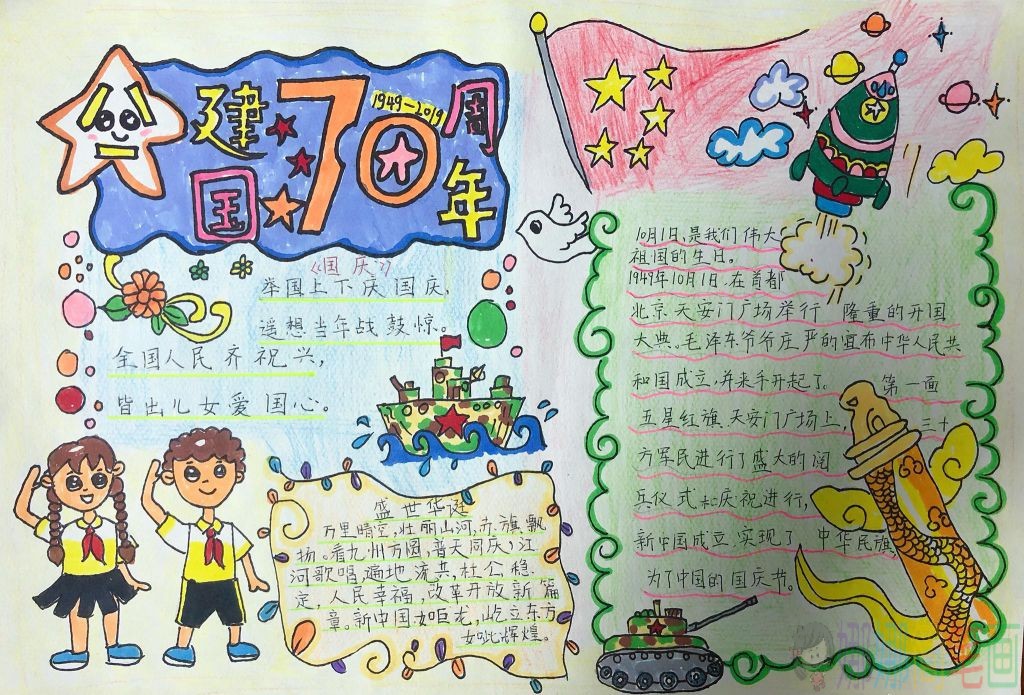 建国70周年
1949-2019
《国庆》
举国上下庆国庆，
遥想当年战鼓惊。
全国人民齐祝兴，
皆出儿女爱国心。
盛世华诞
万里晴空，壮丽山河，升旗飘
扬。看九州万圆，普天同庆，江
河歌唱，遍地流共，社公稳
定，人民幸福，改革开放新篇
章。新中国如巨龙，屹立东方
如此辉煌。
10月1日，是我们伟大
祖国的生日。
1949年10月1日，在首都
北京天安门广场举行 隆重的开国
大典，毛泽东爷爷庄严的宣布中华人民共
和国成立，并来手开起了。 第一面
五星红旗，天安门广场上， 三十
万军民进行了盛大的阅
兵仪式和庆祝进行，
新中国成立，实现了 中华民族
为了中国的国庆节。